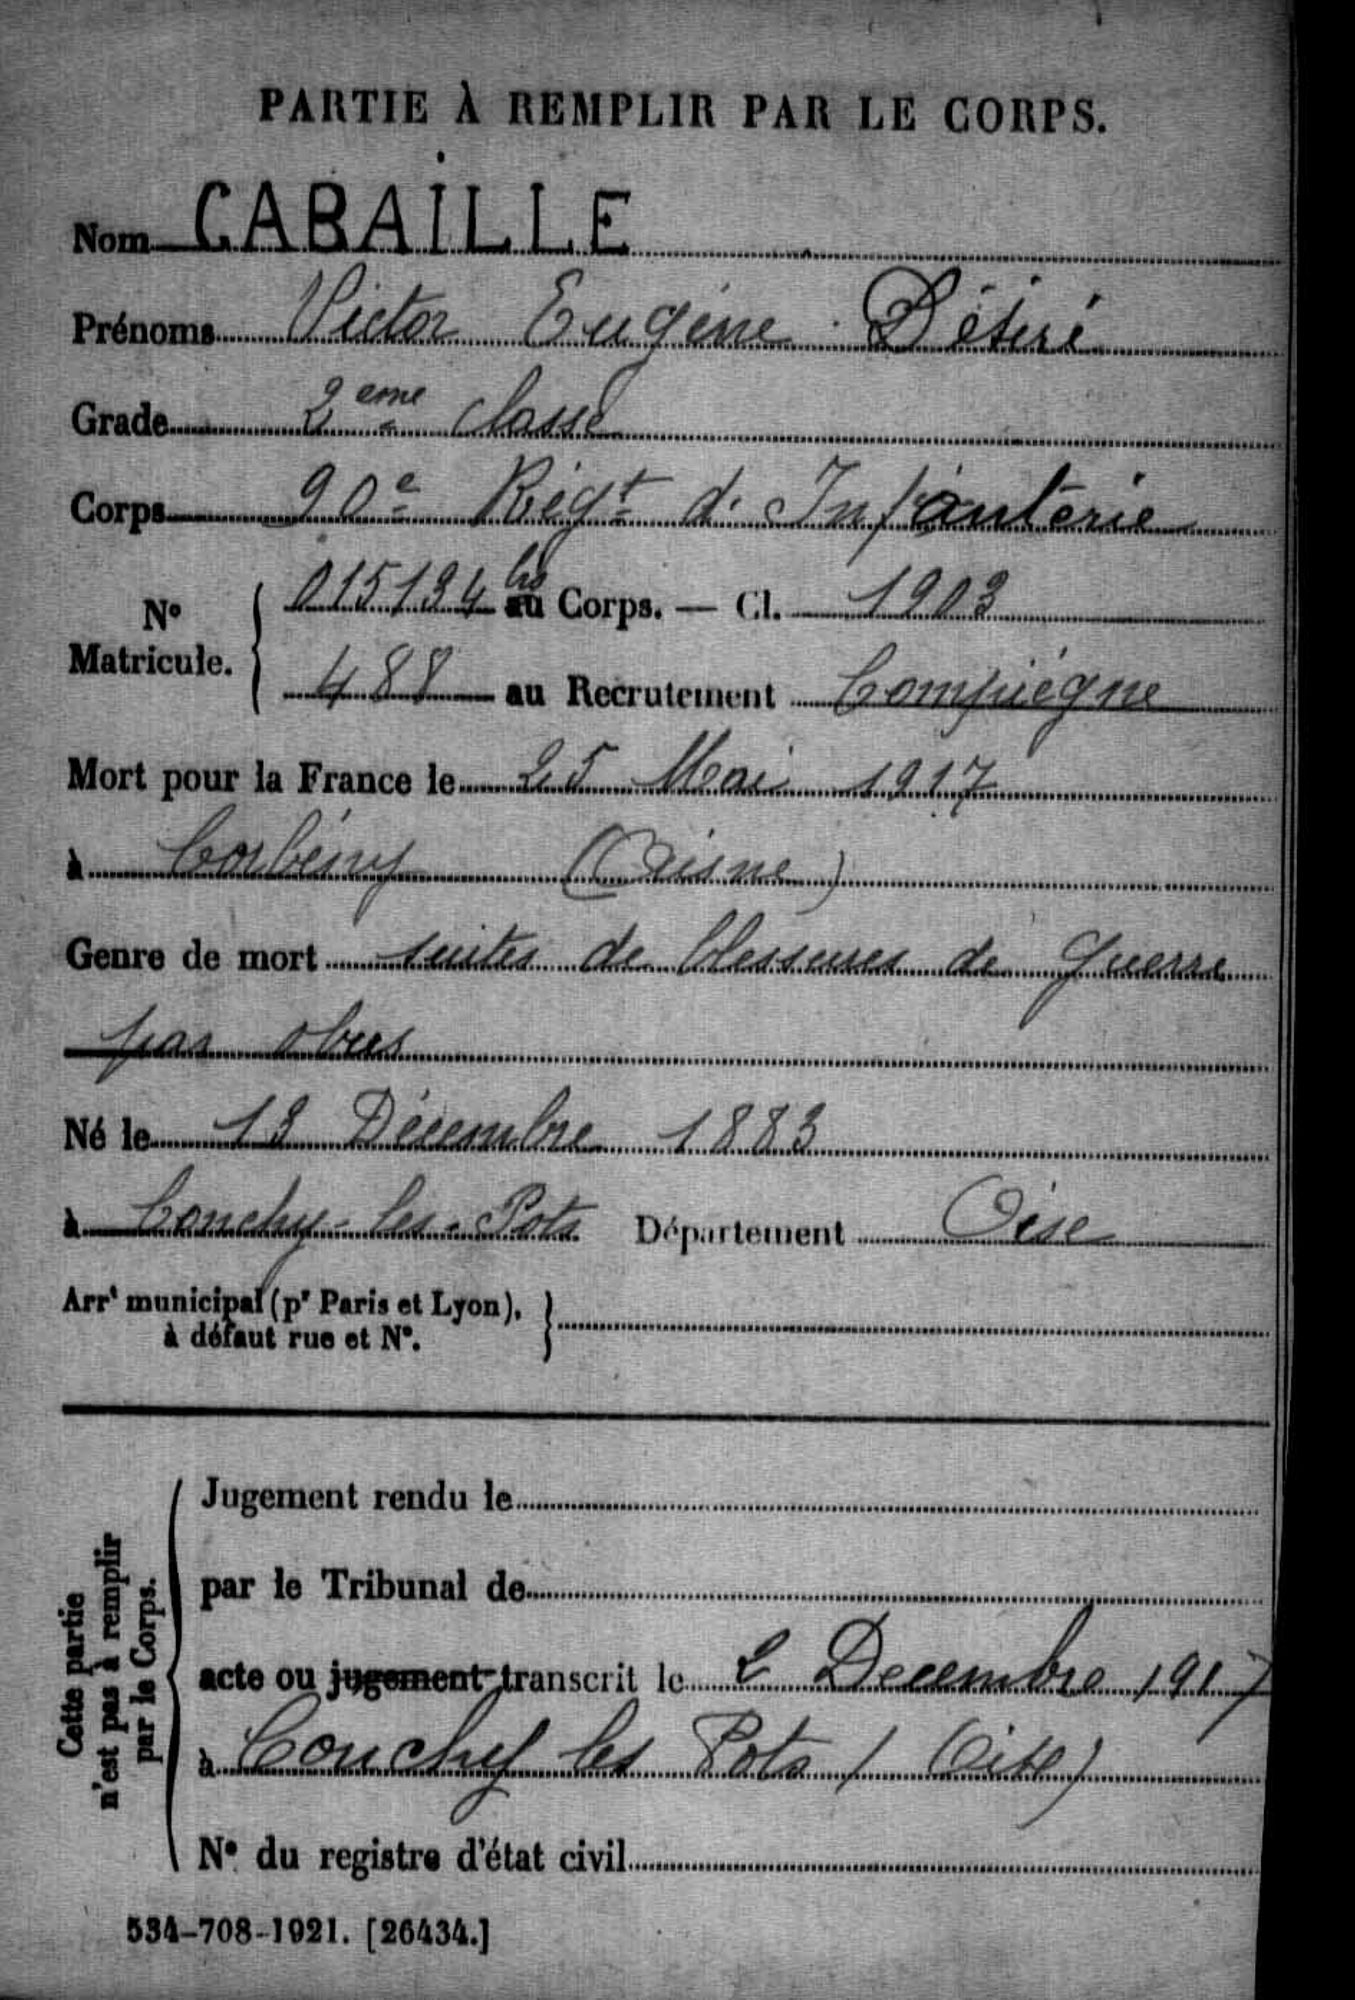 PARTIE À REMPLIR PAR LE CORPS.
Nom CABAILLE
Prénoms Victor Eugène Désiré
Grade 2eme classe
Corps 90e Régt d'Infanterie
N° Matricule. 015134 au Corps. — Cl. 1903
488 au Recrutement Compiègne
Mort pour la France le 25 Mai 1917
à Corbény (Aisne)
Genre de mort suites de blessures de guerre
par obus
Né le 13 Décembre 1883
à Conchy-les-Pots Département Oise
Arrt municipal (pr Paris et Lyon),
à défaut rue et N°.
Cette partie
n'est pas à remplir
par le Corps.
Jugement rendu le
par le Tribunal de
acte ou jugement transcrit le 2 Decembre 1917
à Conchy les Pots (Oise)
N° du registre d'état civil
534-708-1921. [26434.]